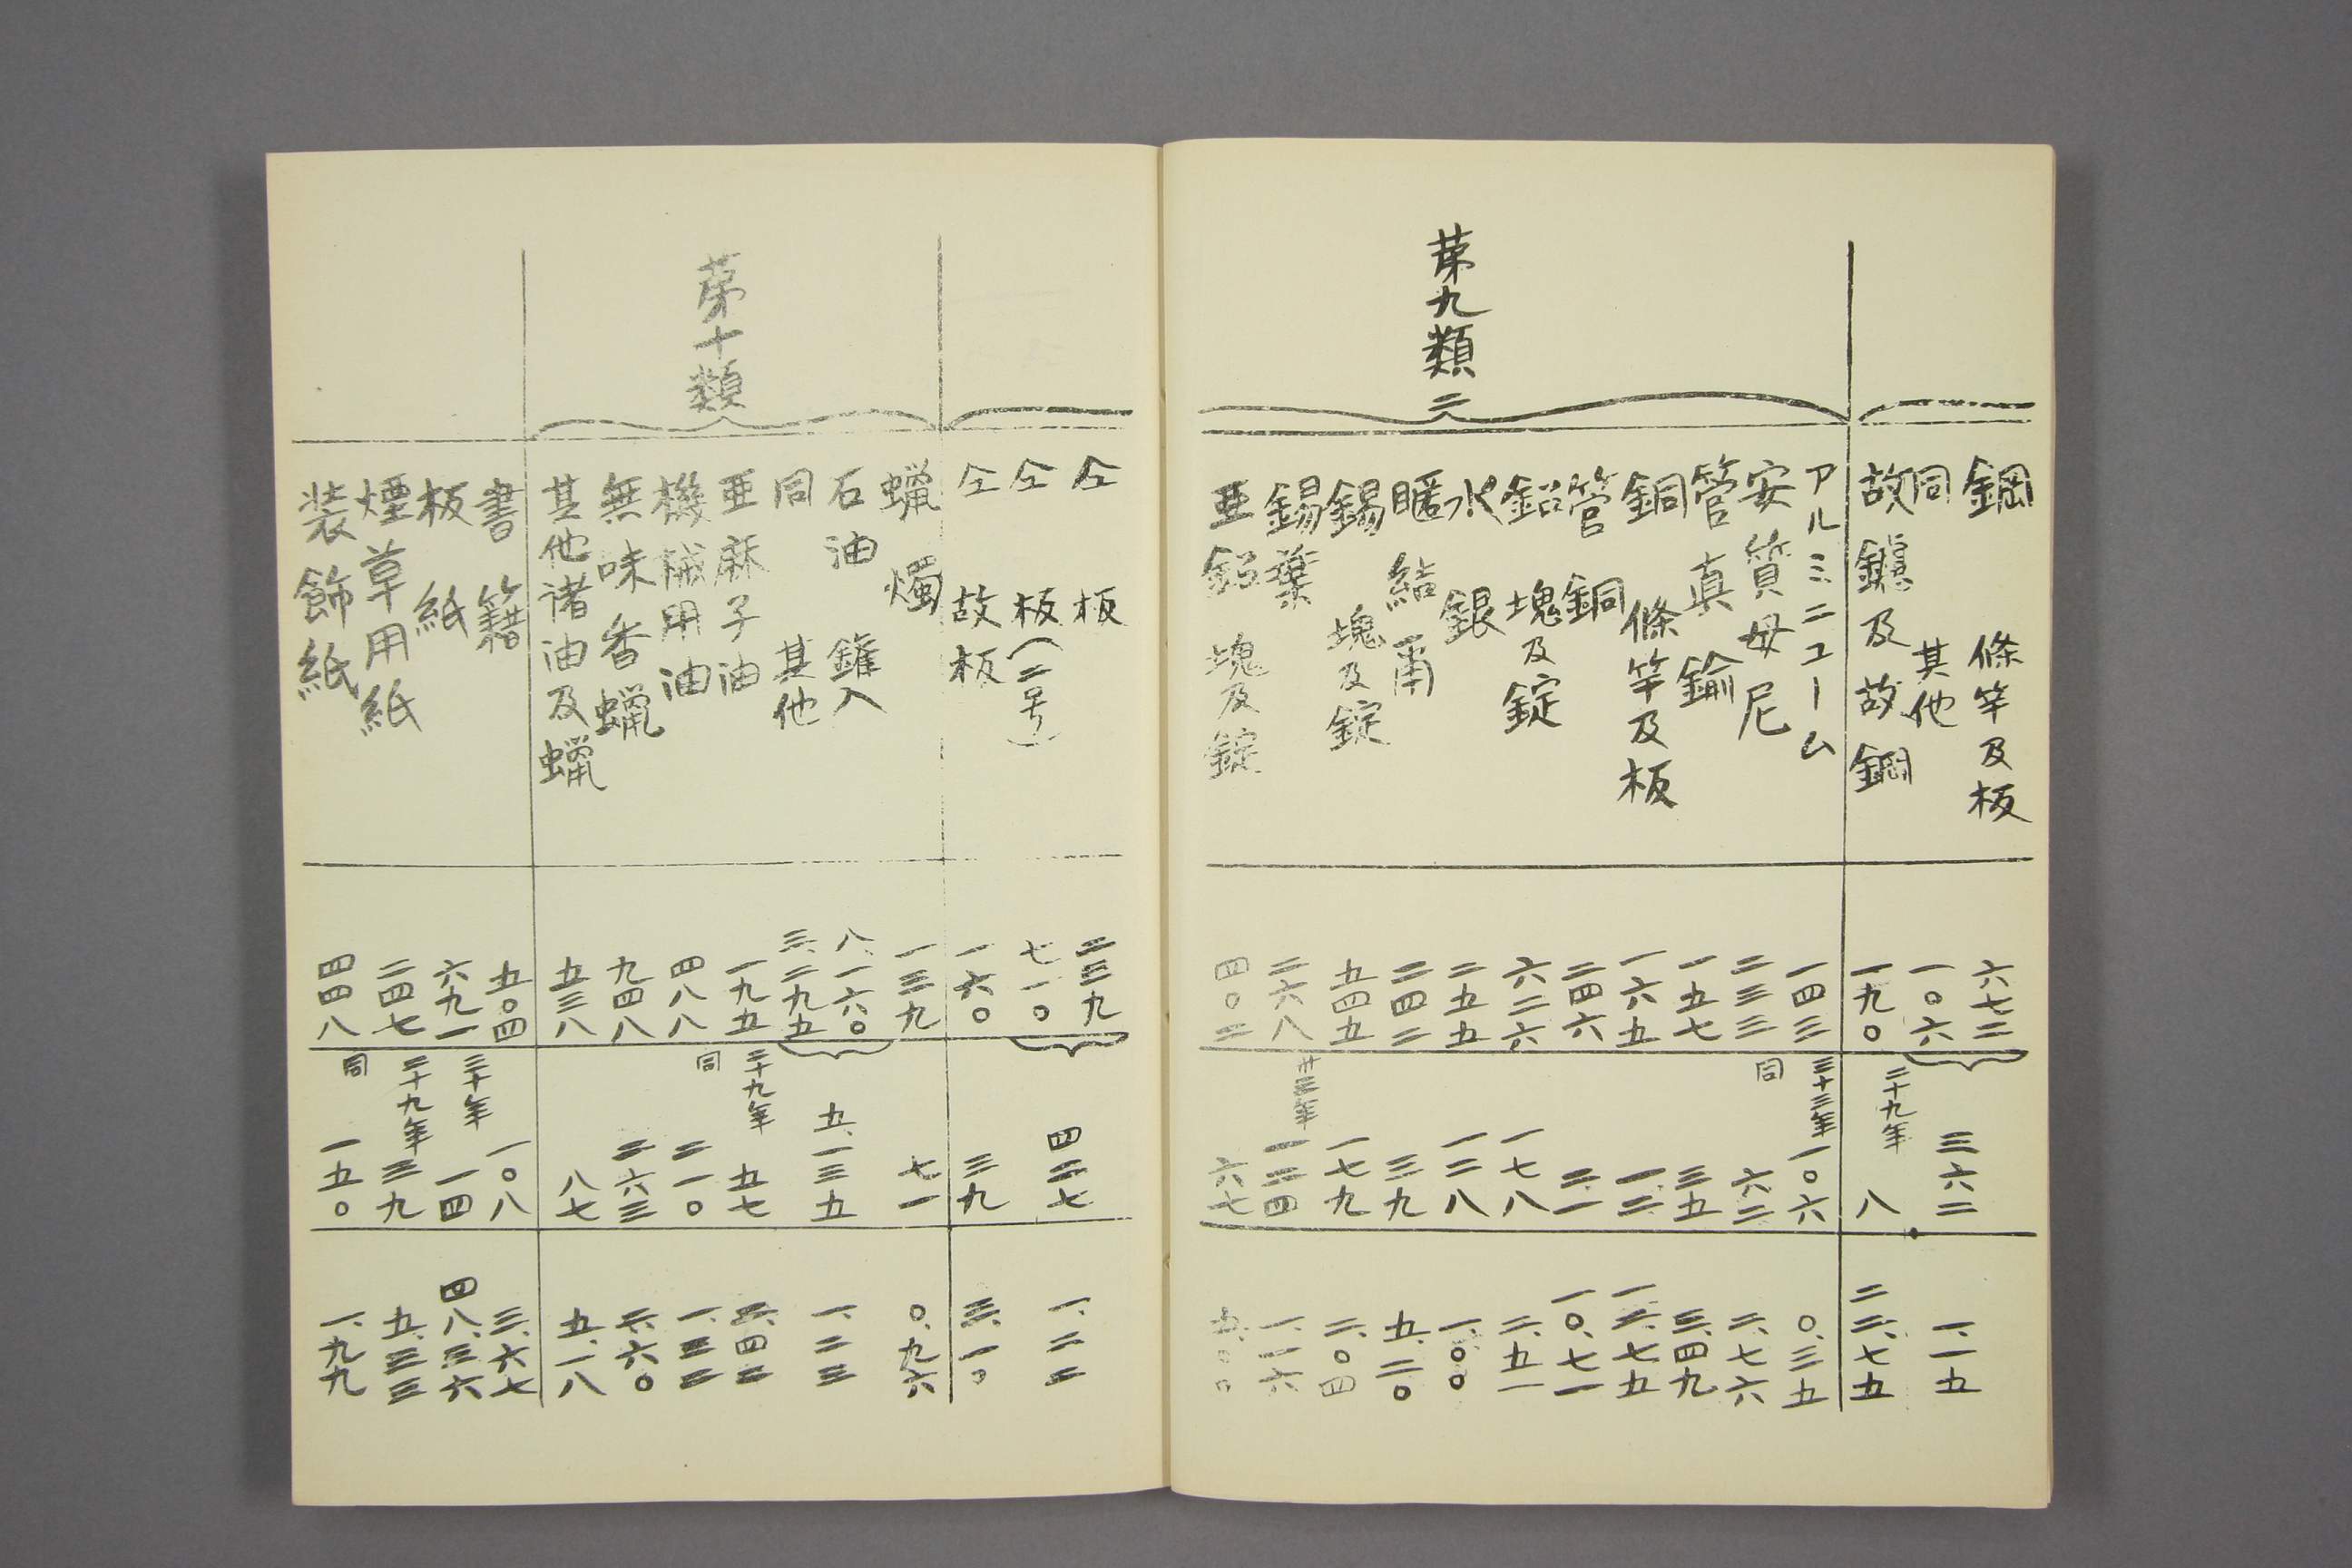 鋼 條竿及板 六七二 三六二 一、一五
同 其他 一〇六
故鐵及故鋼 一九〇 二十九年 八 二二、七五
第九類ノ二
アルミニューム 一四三 三十三年 一〇六 〇、三五
安質母尼 二三三 同 六二 二、七六
管 真鍮 一五七 三五 三、四九
銅 條竿及板 一六五 一二 一二、七五
管 銅 二四六 二一 一〇、七一
鉛 塊及錠 六二六 一七八 二、五一
水銀 二五五 一二八 一、〇〇
眶結甬 二四二 三九 五、二〇
錫 塊及錠 五四五 一七九 二、〇四
錫葉 二六八 卅三年 一二四 一、一六
亜鉛 塊及錠 四〇二 六七 五、〇〇
仝 板 二三九 四二七 一、二二
仝 板(二号) 七一〇
仝 故板 一六〇 三九 三、一〇
第十類
蝋燭 一三九 七一 〇、九六
石油 鑵入 八、一六〇 五、一三五 一、二三
同 其他 三、二九五
亜麻子油 一九五 二十九年 五七 二、四二
機械用油 四八八 同 二一〇 一、三二
無味香蝋 九四八 二六三 二、六〇
其他諸油及蝋 五三八 八七 五、一八
書籍 五〇四 一〇八 三、六七
板紙 六九一 三十年 一四 四八、三六
煙草用紙 二四七 二十九年 三九 五、三三
装飾紙 四四八 同 一五〇 一、九九